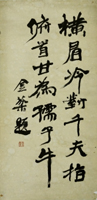 橫眉冷對千夫指
俯首甘為孺子牛
金題